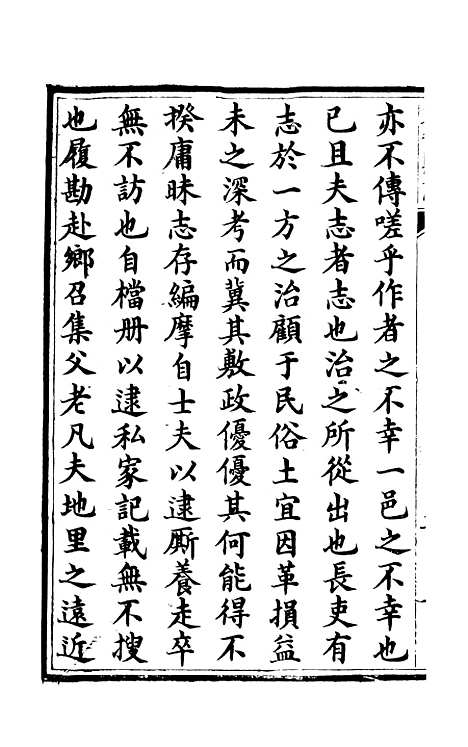 亦不傳嗟乎作者之不幸一邑之不幸也
已且夫志者志也治之所從出也長吏有
志於一方之治顧于民俗土宜因革損益
未之深考而冀其敷政優優其何能得不
揆庸昧志存編摩自士夫以逮厮養走卒
無不訪也自檔册以逮私家記載無不搜
也履勘赴鄉召集父老凡夫地里之遠近